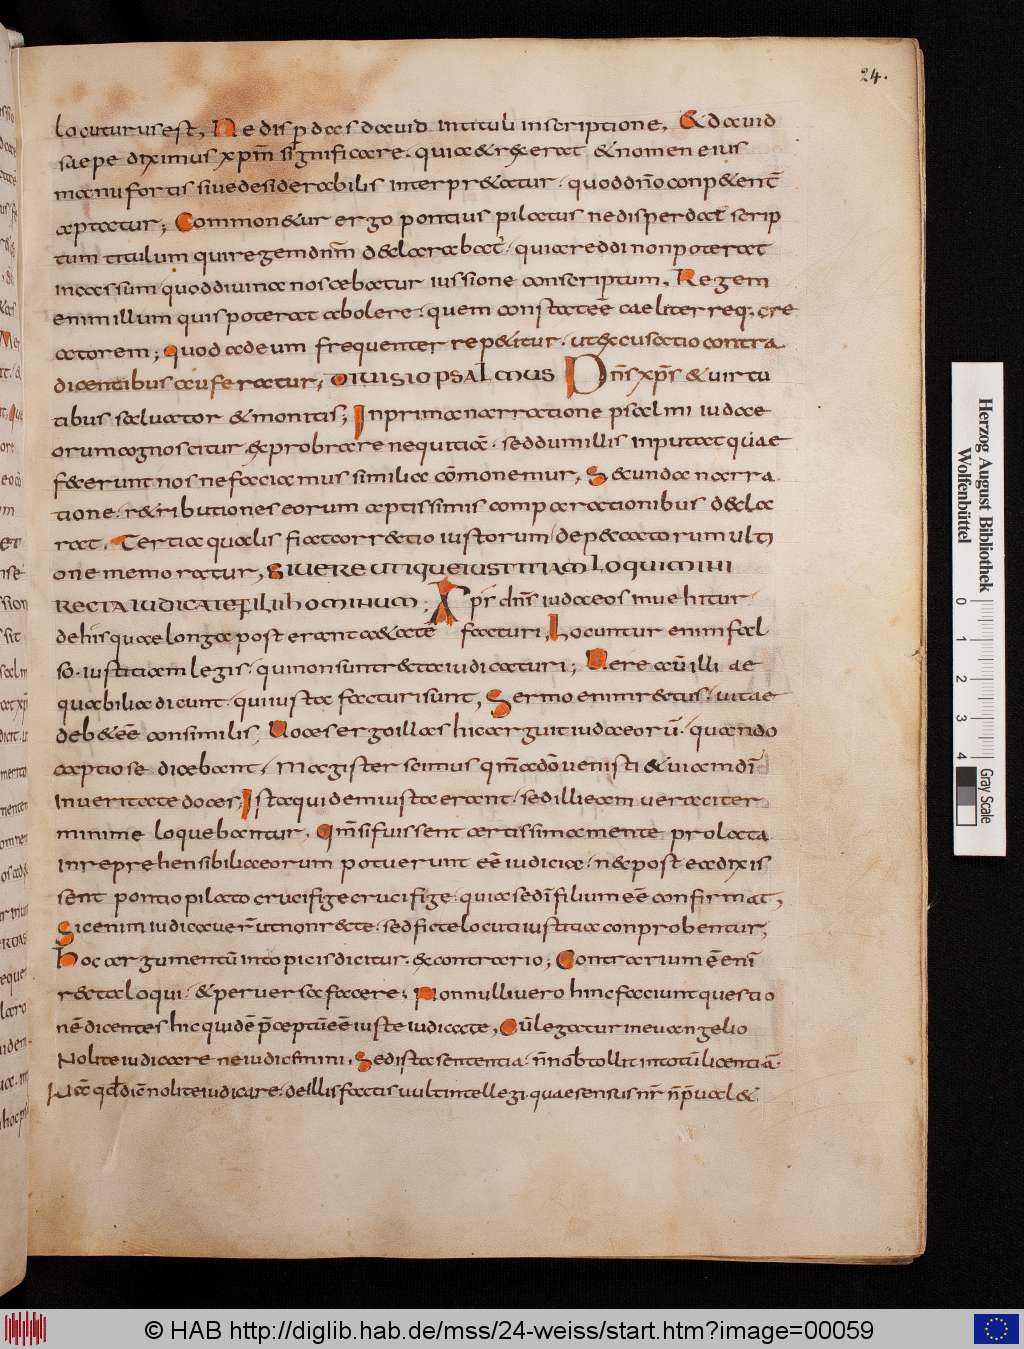 24.
locuturus est, Ne disp̱das dauid in tituli inscriptione, & dauid
saepe diximus xp̄m significare. quia & rex erat & nomen eius
manu fortis siue desiderabilis interpr&atur. quod dn̄o conp&ent̄
aptatur; Common&ur ergo pontius pilatus ne disperdat scrip
tum titulum qui regem dn̄m d&clarabat. quia reddi non poterat
incassum quod diuina noscebatur iussione conscriptum, Regem
enim illum quis poterat abolere. quem constat eē caeli terreq; cre
atorem; quod adeum frequenter rep&itur. ut h&cusatio contra
dicentibus auferatur, DIUISIO PSALMUS Dn̄s xp̄s & uirtu
tibus saluator & monitis; In prima narratione psalmi iudae
orum agnoscitur exprobrare nequitiā. sed dum illis inputat quae
fecerunt nos nefacia mus similia cōmonemur, Secunda narra
tione r&ributiones eorum aptissimis comparationibus decla
rat, Tertia qualis fiat corr&tio iustorum de peccatorum ulti
one memoratur, SI UERE UTIQUE IUSTITIAM LOQUIMINI
RECTA IUDICATE FILII HOMINUM; Xp̄s dn̄s iudaeos inuehitur
de his quae longa post erant aetate facturi, Locuntur enim fal
so. iustitiam legis. qui non sunt recta iudicaturi; Uere aūt illi ae
quabilia dicunt. qui iusta facturi sunt, Sermo enim rectus. uitae
deb& eē consimilis, Uoces ergo illas hic arguit iudaeorū. quando
captiose dicebant, Magister scimus qm̄ a dō uenisti & uiam dī
in ueritate doces, Ista quidem iusta erant. sed illi eam ueraciter
minime loquebantur, Qm̄ si fuissent certissima mente prolata
inreprehensibilia eorum potuerunt eē iudicia. nec postea dixis
sent pontio pilato crucifige crucifige. quia se dī filium eē confirmat,
Sic enim iudicauer̄ ut non recte. sed ficte locuti iustitia conprobentur,
Hoc argumentū in topicis dicitur. ex contrario; Contrarium ē enī
recta loqui. & peruersa facere; Nonnulli uero hinc faciunt questio
nē dicentes hic quidē p̄ceptū eē iuste iudicate, Cū legatur in euangelio
Nolite iudicare ne iudicemini, Sed ista sententia. n̄ nob̄ tollit in totū licentiā
Nā qđ dic̄ nolite iudicare. de illis factis uult intellegi. quae sensus nr̄ n̄ p̄ual&
Herzog August Bibliothek
Wolfenbüttel
0 1 2 3 4
Gray Scale
© HAB http://diglib.hab.de/mss/24-weiss/start.htm?image=00059